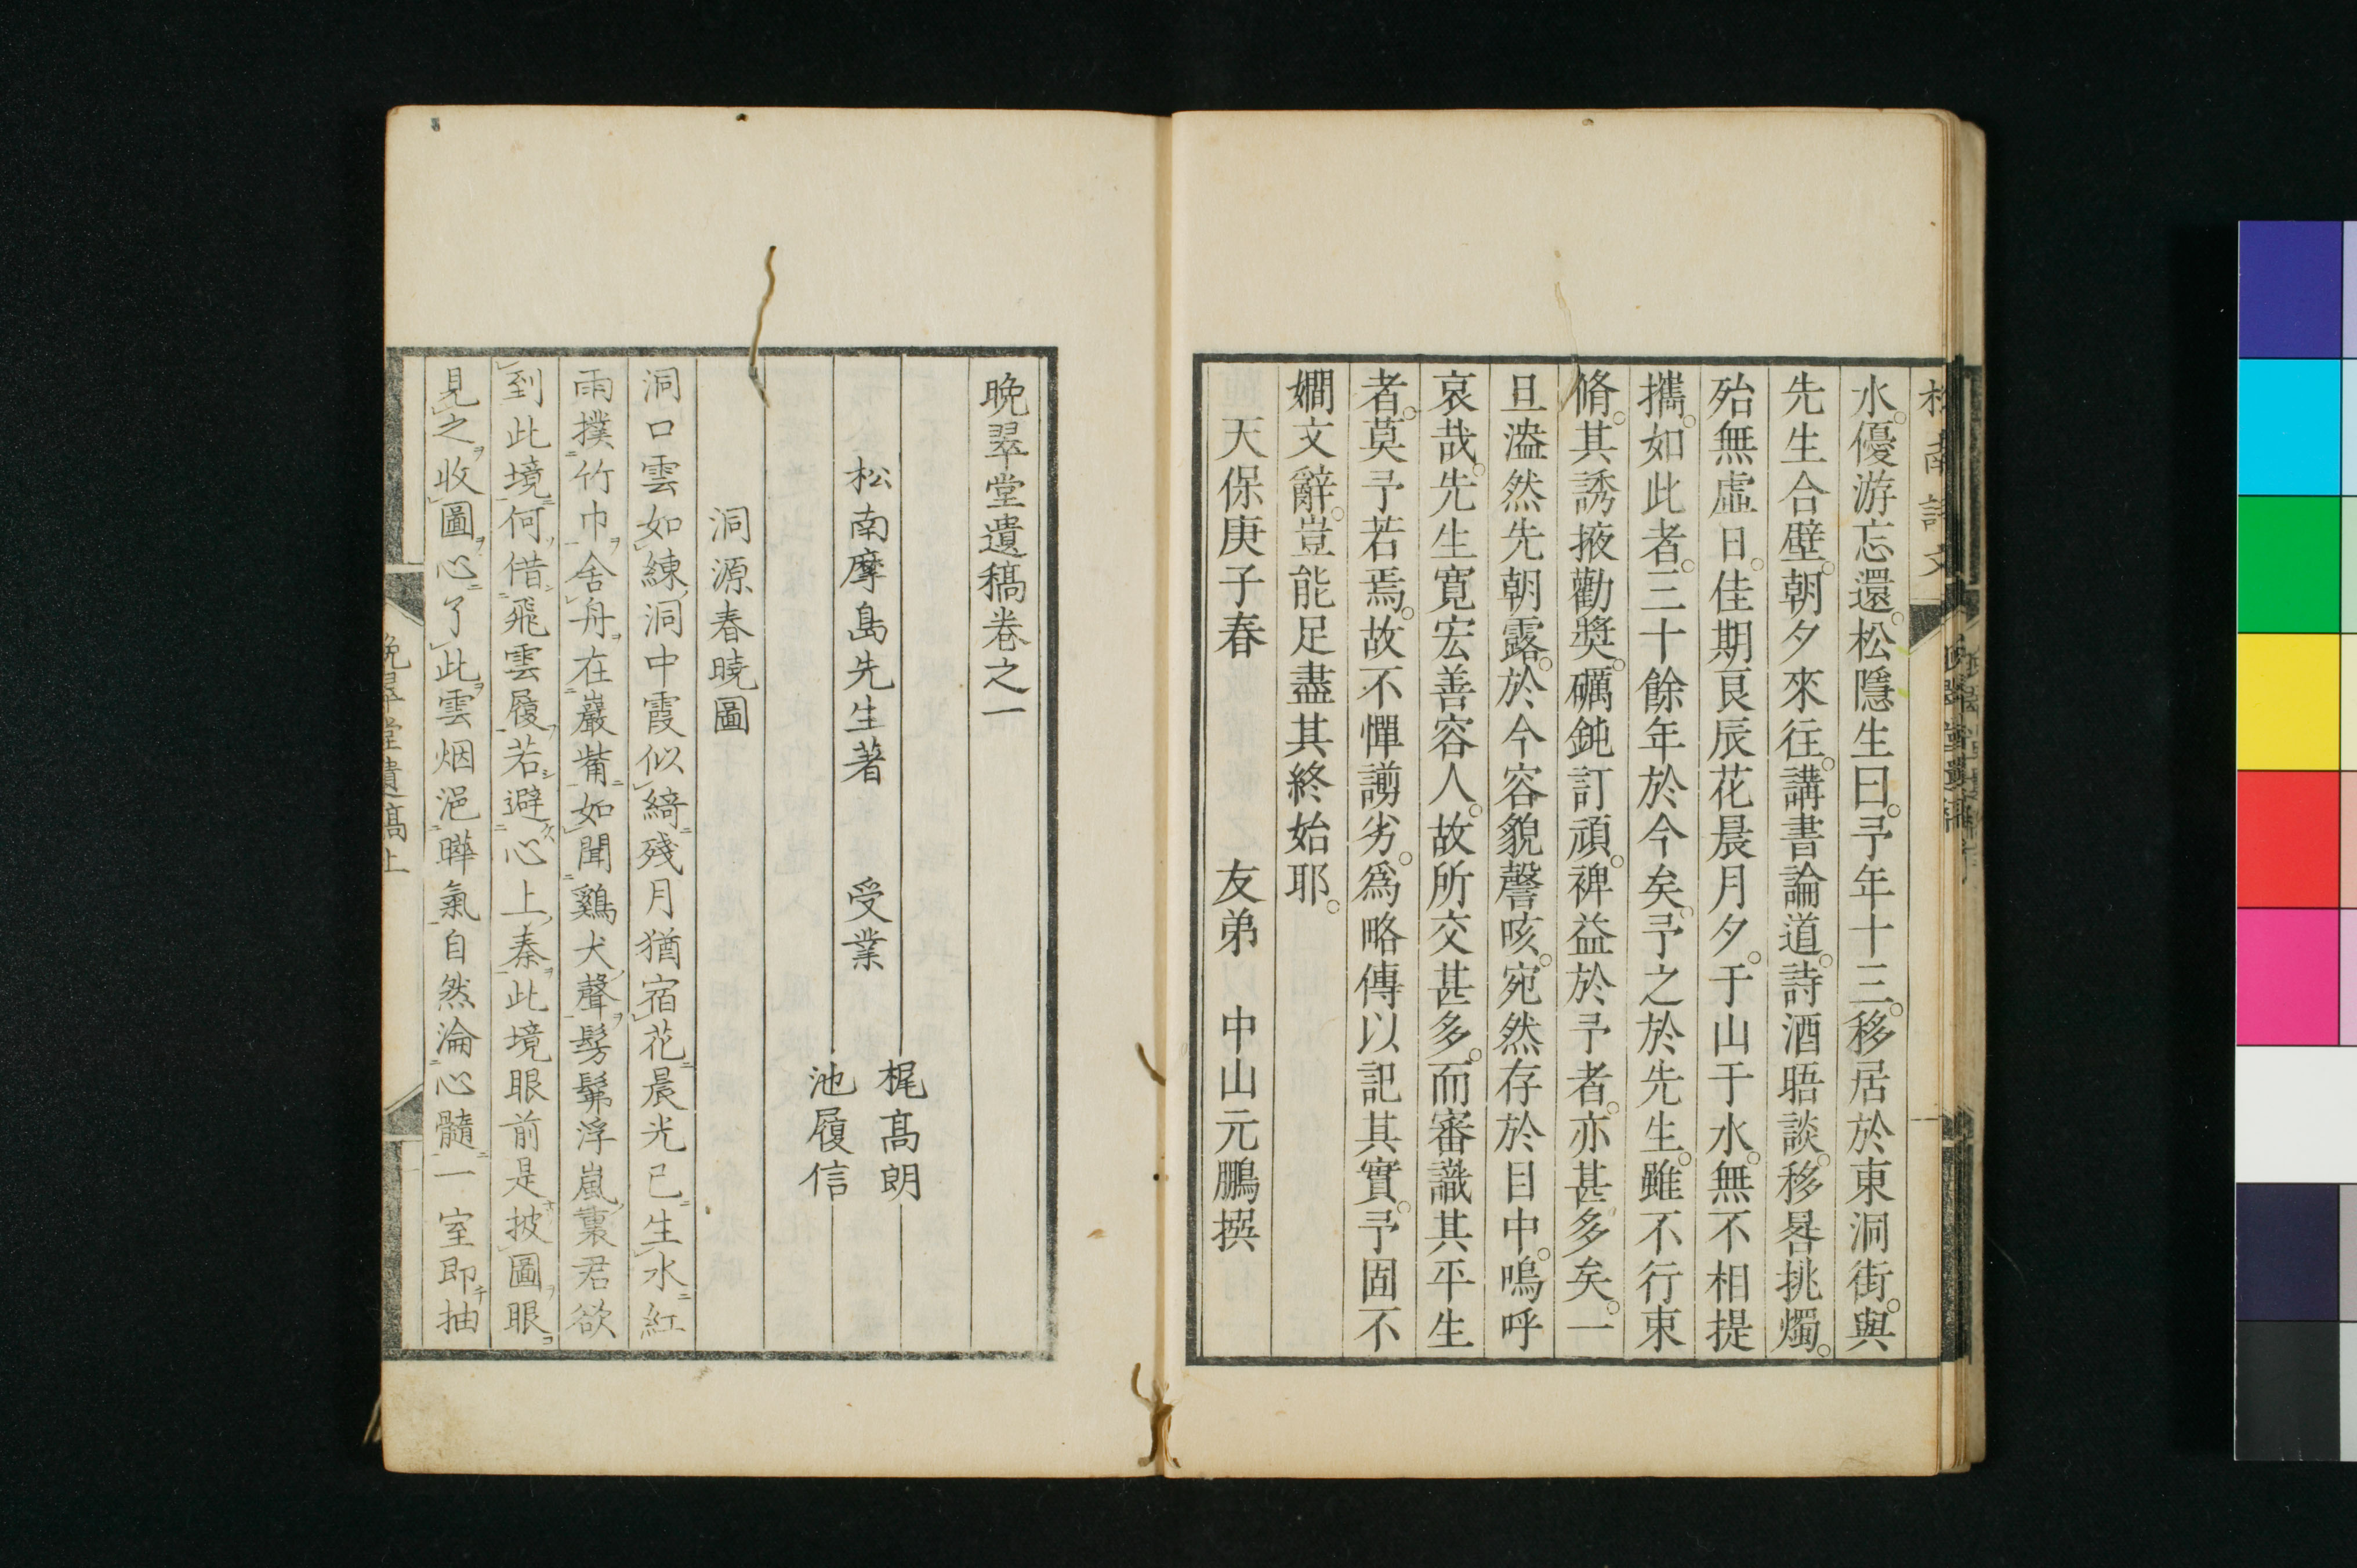 水。優游忘還。松隱生曰。予年十三。移居於東洞街。與
先生合壁。朝夕來往。講書論道。詩酒晤談。移晷挑燭。
殆無虛日。佳期良辰花晨月夕。于山于水。無不相提
攜。如此者。三十餘年於今矣。予之於先生。雖不行束
脩。其誘掖勸奬。礪鈍訂頑。裨益於予者。亦甚多矣。一
旦溘然先朝露。於今容貌謦咳。宛然存於目中。嗚呼
哀哉。先生寬宏善容人。故所交甚多。而審識其平生
者。莫予若焉。故不憚謭劣。爲略傳以記其實。予固不
嫺文辭。豈能足盡其終始耶。
天保庚子春 友弟 中山元鵬撰
晩翠堂遺稿卷之一
松南摩島先生著 受業 梶髙朗
池履信
洞源春曉圖
洞口雲如練洞中霞似綺殘月猶宿花晨光已生水紅
雨撲竹巾舍舟在巖觜如聞鷄犬聲髣髴浮嵐裏君欲
到此境何借飛雲履若避心上秦此境眼前是披圖眼
見之收圖心了此雲烟浥曄氣自然淪心髓一室即抽
晩翠堂遺稿上